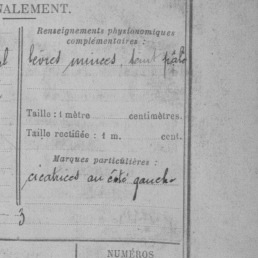 NALEMENT.
Renseignements physionomiques
complémentaires :
lèvres minces, teint pâle
Taille : 1 mètre centimètres.
Taille rectifiée : 1 m. cent.
Marques particulières :
cicatrices au côté gauche
3
NUMÉROS